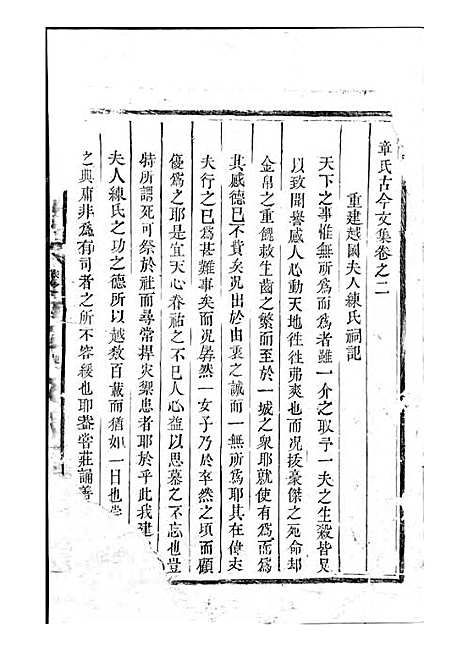 章氏古今文集卷之二
重建越國夫人練氏祠記
天下之事惟無所為而為者雖一介之取予一夫之生殺皆足
以致聞譽感人心動天地徃徃弗爽也而况拔豪傑之死命却
金帛之重餽救生齒之繁而至於一城之衆耶就使有為而為
其感德已不貲矣况出於由衷之誠而一無所為耶其在偉丈
夫行之已為甚難事矣而况孱然一女子乃於卒然之頃而顧
優為之耶是宜天心眷祐之不已人心益以思慕之不忘也豈
特所謂死可祭於社而尋常捍灾禦患者耶於乎此我建
夫人練氏之功之德所以越数百載而猶如一日也
之典庸非為有司者之所不容緩也耶盖嘗莊誦